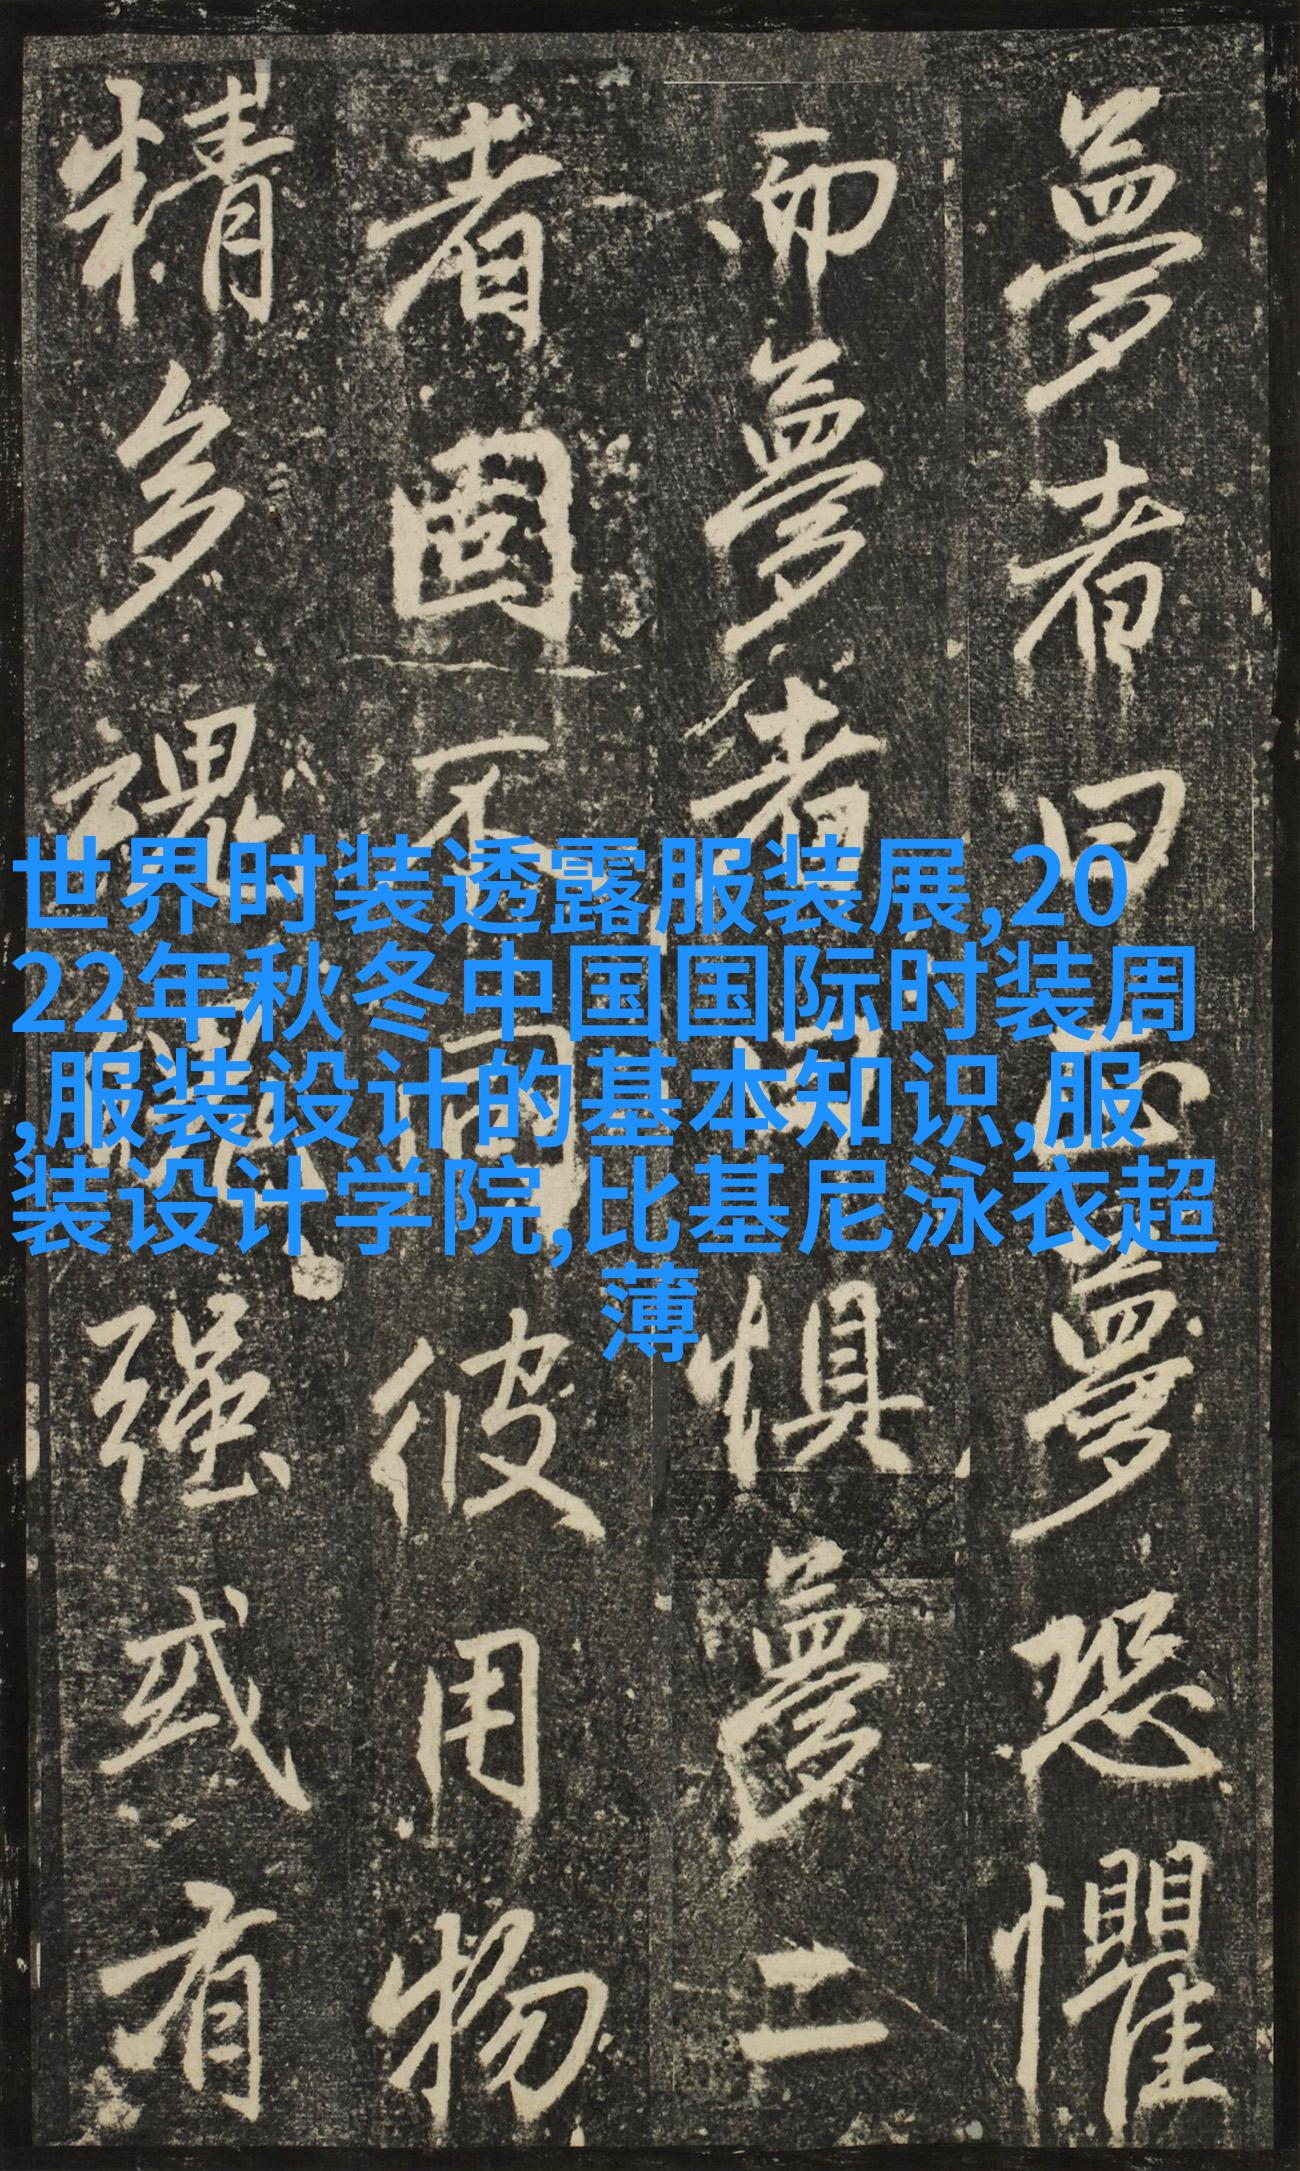 夢者曰夢恐懼
而夢者曰惧夢二
者固不同彼用物
精多魂强或有
世界时装透露服装展,20
22年秋冬中国国际时装周
,服装设计的基本知识,服
装设计学院,比基尼泳衣超
薄